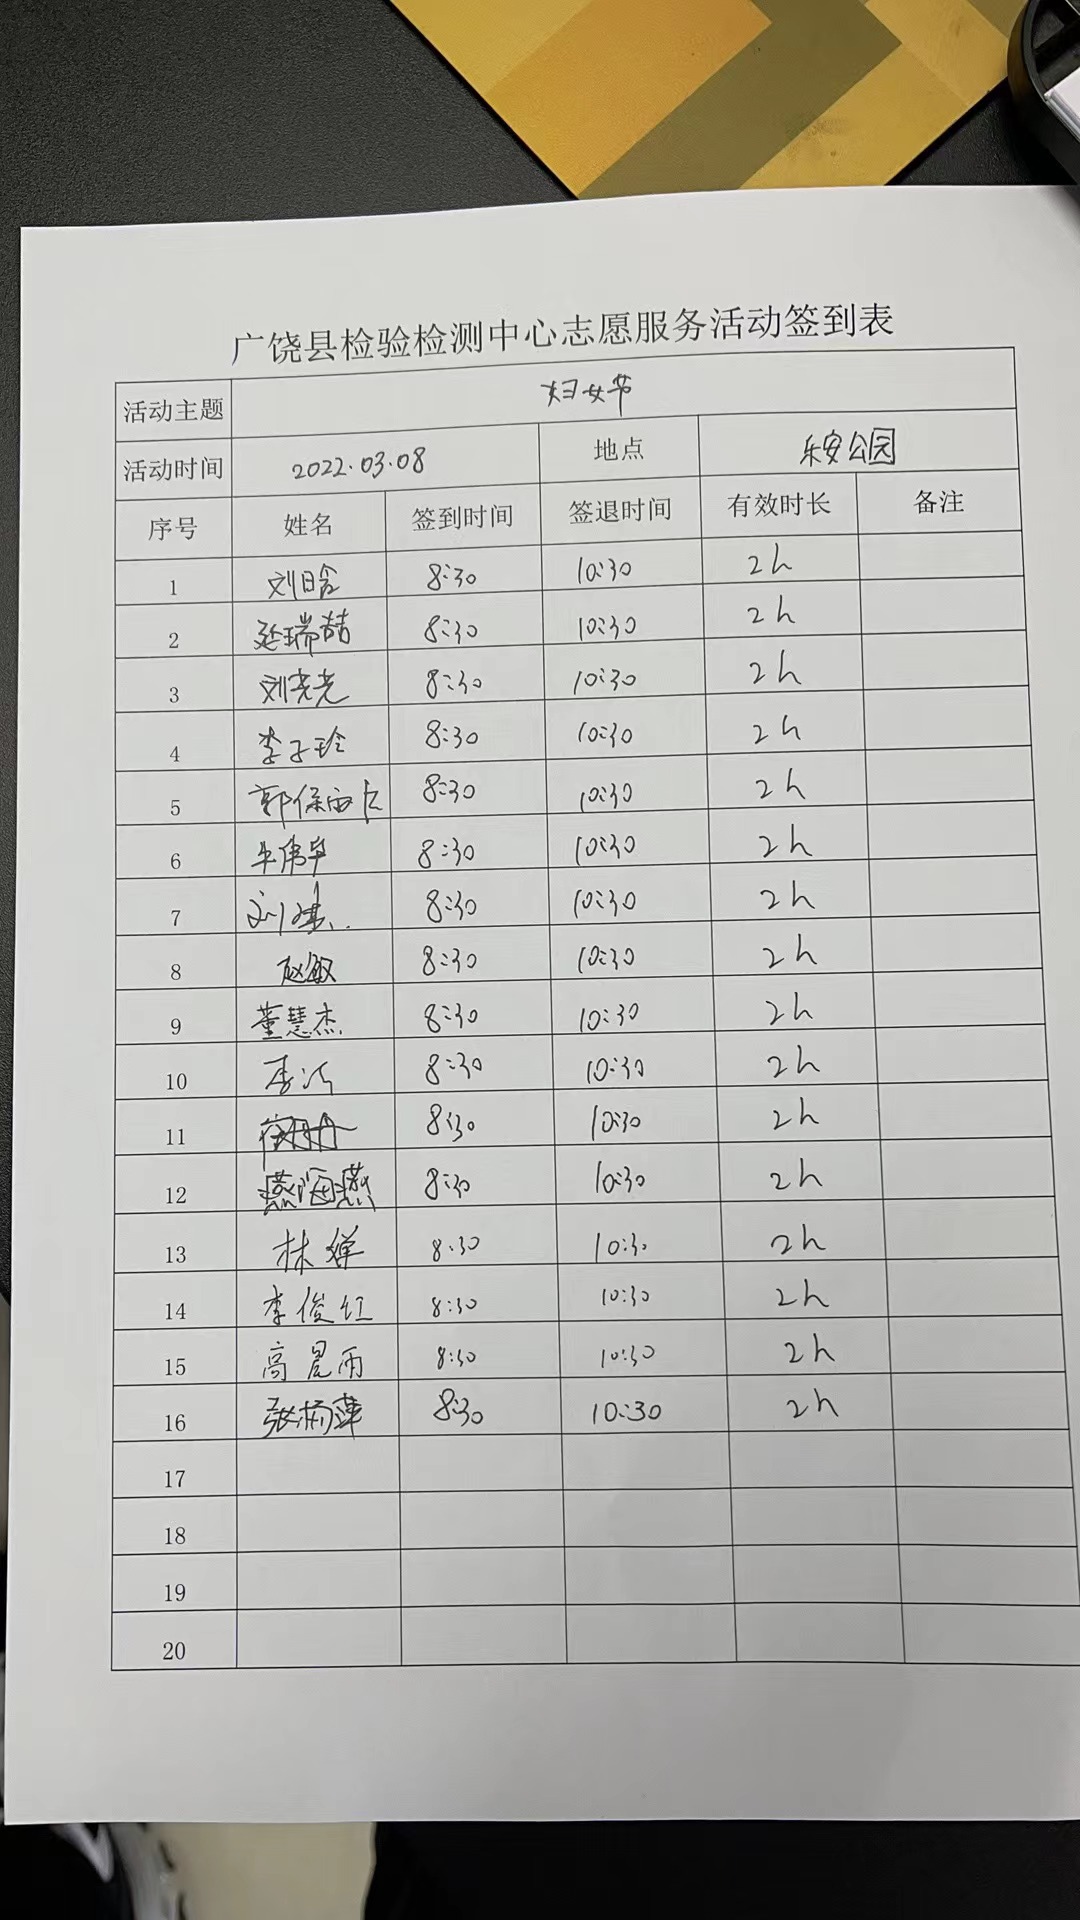 广饶县检验检测中心志愿服务活动签到表
活动主题 妇女节
活动时间 2022.03.08 地点 乐安公园
序号 姓名 签到时间 签退时间 有效时长 备注
1 刘日含 8:30 10:30 2h
2 延瑞喆 8:30 10:30 2h
3 刘尧尧 8:30 10:30 2h
4 李子玲 8:30 10:30 2h
5 郭保 8:30 10:30 2h
6 伟华 8:30 10:30 2h
7 刘 8:30 10:30 2h
8 赵敏 8:30 10:30 2h
9 董慧杰 8:30 10:30 2h
10 李 8:30 10:30 2h
11 8:30 10:30 2h
12 燕海燕 8:30 10:30 2h
13 林婵 8:30 10:30 2h
14 李俊红 8:30 10:30 2h
15 高晨雨 8:30 10:30 2h
16 张杨萍 8:30 10:30 2h
17
18
19
20